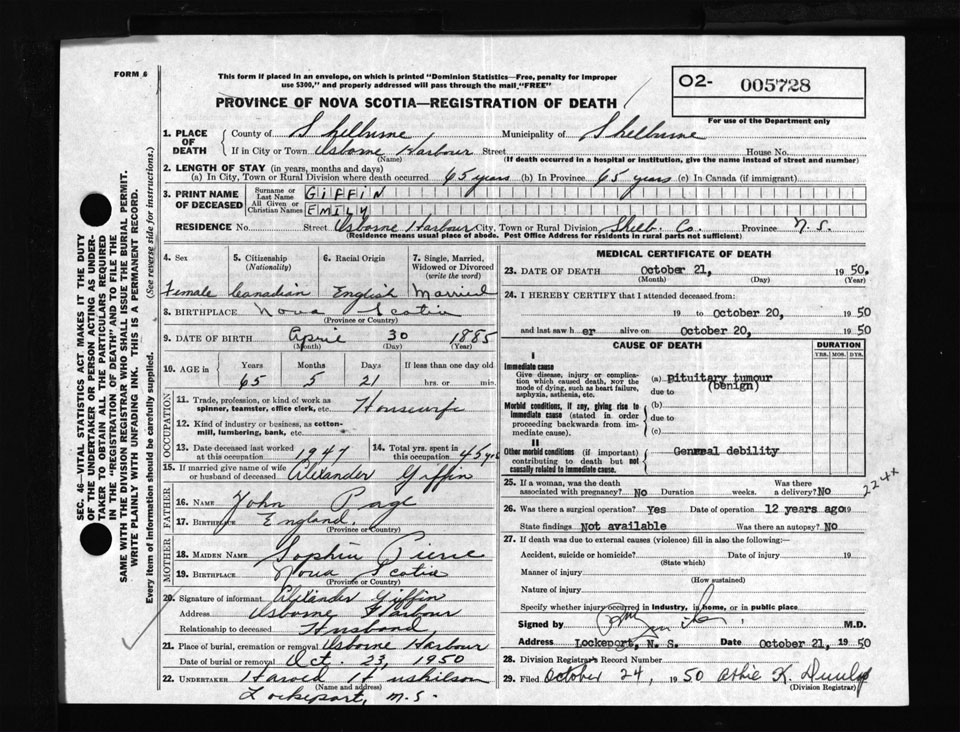 FORM 6
This form if placed in an envelope, on which is printed "Dominion Statistics—Free, penalty for improper
use $300," and properly addressed will pass through the mail "FREE"
O2- 005728
PROVINCE OF NOVA SCOTIA—REGISTRATION OF DEATH
For use of the Department only
1. PLACE OF DEATH { County of Shelburne Municipality of Shelburne
If in City or Town Osborne Harbour Street House No.
(Name) (If death occurred in a hospital or institution, give the name instead of street and number)
2. LENGTH OF STAY (in years, months and days)
(a) In City, Town or Rural Division where death occurred 65 years (b) In Province 65 years (c) In Canada (if immigrant)
3. PRINT NAME OF DECEASED { Surname or Last Name GIFFIN
All Given or Christian Names EMILY
RESIDENCE No. Street Osborne Harbour City, Town or Rural Division Shelb. Co. Province N.S.
(Residence means usual place of abode. Post Office Address for residents in rural parts not sufficient)
4. Sex 5. Citizenship (Nationality) 6. Racial Origin 7. Single, Married, Widowed or Divorced (write the word)
Female Canadian English Married
8. BIRTHPLACE Nova Scotia
(Province or Country)
9. DATE OF BIRTH April 30 1885
(Month) (Day) (Year)
10. AGE in { Years Months Days If less than one day old
65 5 21 hrs. or min.
OCCUPATION
11. Trade, profession, or kind of work as spinner, teamster, office clerk, etc. Housewife
12. Kind of industry or business, as cotton-mill, lumbering, bank, etc.
13. Date deceased last worked at this occupation 1947 14. Total yrs. spent in this occupation 45 yrs
15. If married give name of wife or husband of deceased Alexander Giffin
FATHER
16. NAME John Page
17. Birthplace England
(Province or Country)
MOTHER
18. MAIDEN NAME Sophia
19. BIRTHPLACE Nova Scotia
(Province or Country)
20. Signature of informant Alexander Giffin
Address Osborne Harbour
Relationship to deceased Husband
21. Place of burial, cremation or removal Osborne Harbour
Date of burial or removal Oct. 23, 1950
22. UNDERTAKER Harold
(Name and address)
Lockeport, N.S.
MEDICAL CERTIFICATE OF DEATH
23. DATE OF DEATH October 21, 1950.
(Month) (Day)
24. I HEREBY CERTIFY that I attended deceased from:
19 to October 20, 1950
and last saw h er alive on October 20, 1950
CAUSE OF DEATH DURATION
YRS. MOS. DYS.
I
Immediate cause
Give disease, injury or complication which caused death, NOT the mode of dying, such as heart failure, asphyxia, asthenia, etc.
(a) Pituitary tumour
(benign)
due to
Morbid conditions, if any, giving rise to immediate cause (stated in order proceeding backwards from immediate cause).
(b)
due to
(c)
II
Other morbid conditions (if important) contributing to death but not causally related to immediate cause.
General debility
25. If a woman, was the death associated with pregnancy? No Duration weeks. Was there a delivery? No
224x
26. Was there a surgical operation? Yes Date of operation 12 years ago 19
State findings Not available Was there an autopsy? No
27. If death was due to external causes (violence) fill in also the following:—
Accident, suicide or homicide? Date of injury 19
(State which)
Manner of injury
(How sustained)
Nature of injury
Specify whether injury occurred in industry, in home, or in public place
Signed by M.D.
Address Lockeport, N. S. Date October 21, 1950
28. Division Registrar's Record Number
29. Filed October 24, 1950 K. Dunlop
(Division Registrar)
SEC. 46—VITAL STATISTICS ACT MAKES IT THE DUTY
OF THE UNDERTAKER OR PERSON ACTING AS UNDER-
TAKER TO OBTAIN ALL THE PARTICULARS REQUIRED
IN THE "REGISTRATION OF DEATH" AND TO FILE THE
SAME WITH THE DIVISION REGISTRAR WHO SHALL ISSUE THE BURIAL PERMIT.
WRITE PLAINLY WITH UNFADING INK. THIS IS A PERMANENT RECORD.
Every item of information should be carefully supplied. (See reverse side for instructions.)